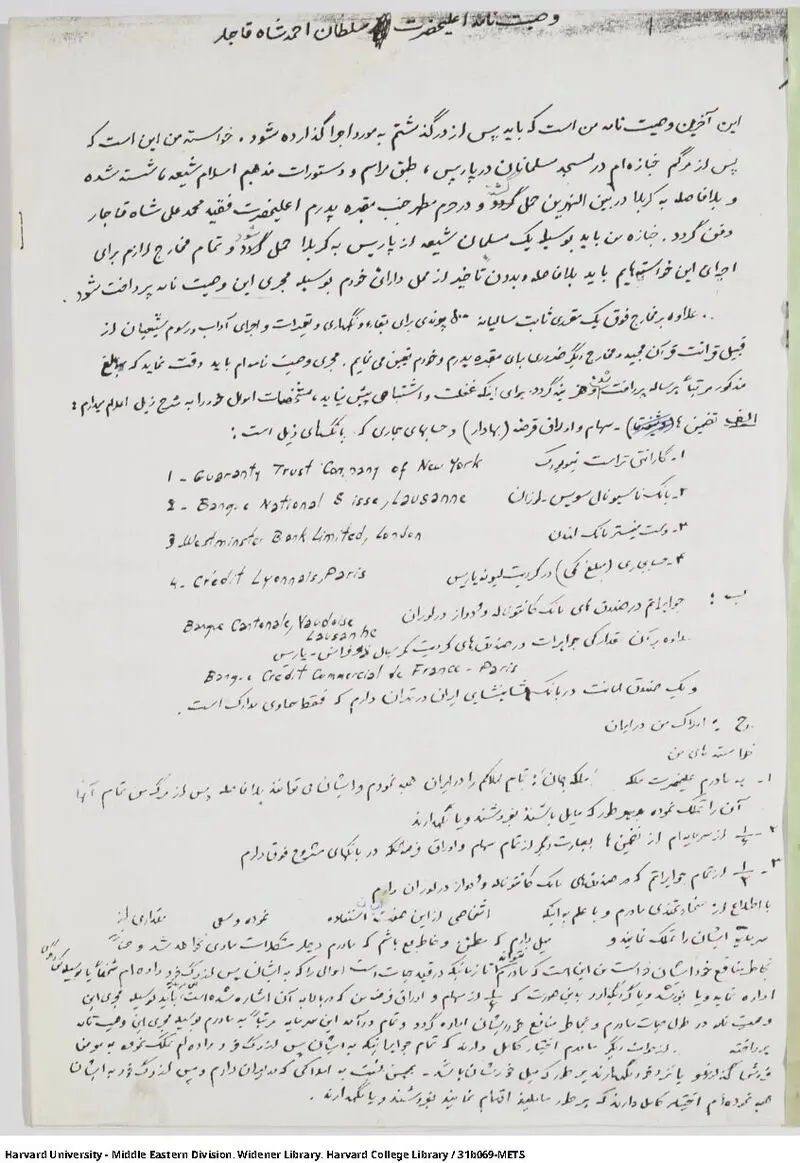 وصیت نامه اعلیحضرت سلطان احمد شاه قاجار
این آخرین وصیت نامه من است که باید پس از درگذشتم به مورد اجرا گذارده شود. خواسته من این است که
پس از مرگم جنازه‌ام در مسجد مسلمانان در پاریس، طبق مراسم و دستورات مذهبم اسلام شیعه، شسته شده
و بلافاصله به کربلا در بین النهرین حمل گردد و در حرم مطهر جنب مقبره پدرم اعلیحضرت فقید محمد علی شاه قاجار
دفن گردد. جنازه من باید بوسیله یک مسلمان شیعه از پاریس به کربلا حمل گردد و تمام مخارج لازم برای
اجرای این خواسته‌هایم باید بلافاصله و بدون تاخیر از محل دارائی خودم بوسیله مجری این وصیت نامه پرداخت شود.
علاوه بر مخارج فوق یک مقرری ثابت سالیانه پوندی برای بقاء و نگهداری و تعمیرات و اجرای آداب و رسوم شیعیان از
قبیل قرائت قرآن مجید و مخارج دیگر ضروری برای مقبره پدرم و خودم تعیین می نمایم. مجری وصیت نامه‌ام باید دقت نماید که مبالغ
مذکور مرتباً هر ساله پرداخت و هزینه گردد. برای اینکه غفلت و اشتباهی پیش نیاید، مشخصات اموال خود را به شرح ذیل اعلام میدارم:
الف تضمین ها - سهام و اوراق قرضه (بهادار) و حسابهای جاری که بانکهای ذیل است:
۱- گارانتی تراست نیویورک 1 - Guaranty Trust Company of New York
۲- بانک ناسیونال سویس - لوزان 2 - Banque National Suisse, Lausanne
۳- وست مینستر بانک لندن 3 - Westminster Bank Limited, London
۴- حساب جاری (مبلغ کمی) در کردیت لیونه پاریس 4 - Crédit Lyonnais, Paris
ب: جواهراتم در صندوق های بانک کانتونال وودواز در لوزان Banque Cantonale, Vaudoise
Lausanne
علاوه بر آن مقدار کمی جواهرات در صندوق‌های کردیت کمرسیال دو فرانس - پاریس
Banque Crédit Commercial de France - Paris
و یک صندوق امانت در بانک شاهنشاهی ایران در تهران دارم که فقط محتوی مدارک است.
ج- املاک من در ایران
خواسته های من
۱- به مادرم علیحضرت ملکه "ملکه جهان": تمام املاکم را در ایران هبه نمودم و ایشان می توانند بلافاصله پس از مرگ من تمام آنها
آن را تملک نموده و هر طور که مایل باشند بفروشند و یا نگهدارند
۲- از سرمایه‌ام از تضمین ها بعبارت دیگر از تمام سهام و اوراق قرضه که در بانکهای مشروح فوق دارم
۳- از تمام جواهراتم که در صندوق‌های بانک کانتونال وودواز در لوزان دارم
با اطلاع از سخاوتمندی مادرم و با علم به اینکه اشخاصی از این صفت استفاده نموده و سعی مقداری از
سرمایه ایشان را تملک نمایند و میل دارم که مطمئن و خاطر جمع باشم که مادرم دچار مشکلات مادی نخواهد شد و
بخاطر منافع خود ایشان خواست من این است که مادرم تا زمانیکه در قید حیات است اموالی را که به ایشان پس از مرگ خود داده‌ام شخصاً یا بوسیله
اداره نماید و یا بفروشد و یا نگهدارد بدین صورت که از سهام و اوراق قرضه من که در بالا به آن اشاره شده است باید بوسیله مجری این
وصیت نامه در طول حیات مادرم و بخاطر منافع خود ایشان اداره گردد و تمام درآمد این سرمایه مرتباً به مادرم بوسیله مجری این وصیت نامه
پرداخته از جهات دیگر مادرم اختیار کامل دارند که تمام جواهراتیکه به ایشان پس از مرگ خود داده‌ام تملک نموده به
فروش گذارده و یا نزد خود نگهدارند هر طور که میل خودشان باشد. همچنین نسبت به املاکی که در ایران دارم و پس از مرگ خود به ایشان
هبه نموده‌ام اختیار کامل دارند که هر طور مایلند اقدام نمایند بفروشند و یا نگهدارند.
Harvard University - Middle Eastern Division, Widener Library, Harvard College Library / 31b069-METS